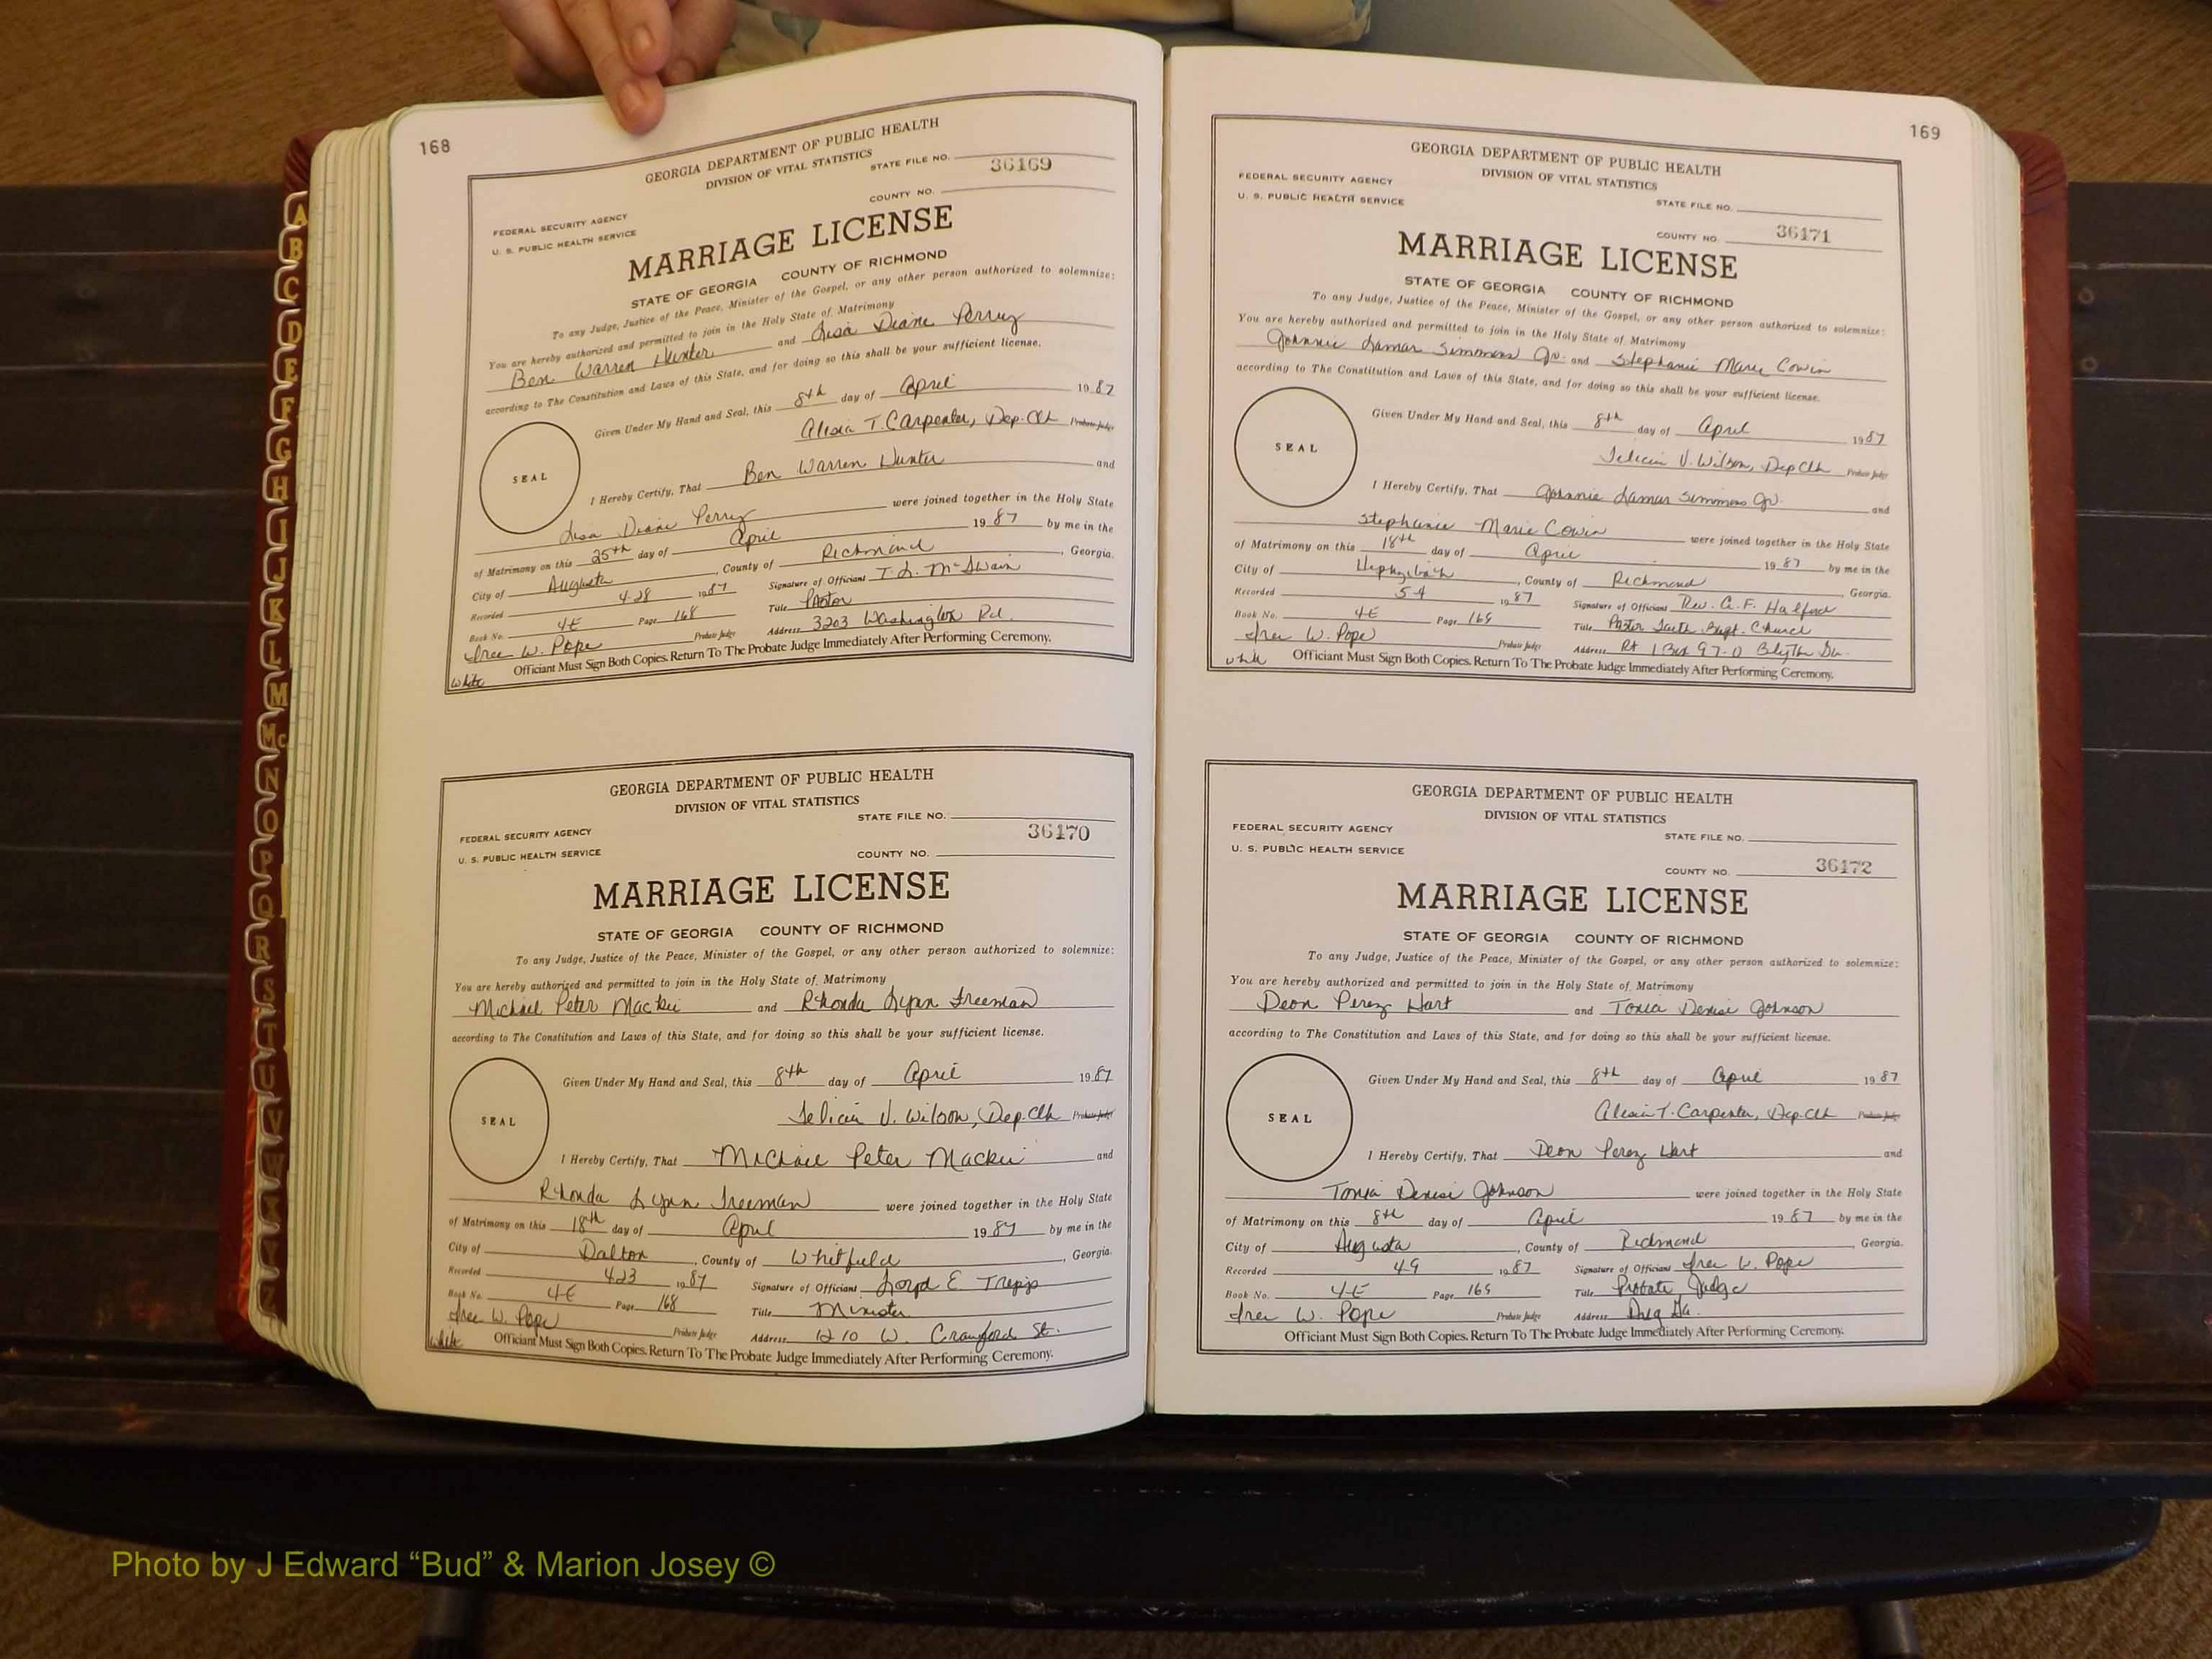 168
GEORGIA DEPARTMENT OF PUBLIC HEALTH
DIVISION OF VITAL STATISTICS
STATE FILE NO. 36169
FEDERAL SECURITY AGENCY
U. S. PUBLIC HEALTH SERVICE
COUNTY NO.
MARRIAGE LICENSE
STATE OF GEORGIA COUNTY OF RICHMOND
To any Judge, Justice of the Peace, Minister of the Gospel, or any other person authorized to solemnize:
You are hereby authorized and permitted to join in the Holy State of Matrimony
Ben Warren Hunter and Lisa Diane Perry
according to The Constitution and Laws of this State, and for doing so this shall be your sufficient license.
Given Under My Hand and Seal, this 8th day of April 1987
Alisia T. Carpenter, Dep. Clk Probate Judge
SEAL
I Hereby Certify, That Ben Warren Hunter and
Lisa Diane Perry were joined together in the Holy State
of Matrimony on this 25th day of April 1987 by me in the
City of Augusta, County of Richmond, Georgia.
Recorded 4-28 1987 Signature of Officiant T. L. McSwain
Book No. 4E Page 168 Title Pastor
Free W. Pope Probate Judge Address 3203 Washington Rd.
Officiant Must Sign Both Copies. Return To The Probate Judge Immediately After Performing Ceremony.
White
GEORGIA DEPARTMENT OF PUBLIC HEALTH
DIVISION OF VITAL STATISTICS
STATE FILE NO.
36170
FEDERAL SECURITY AGENCY
U. S. PUBLIC HEALTH SERVICE
COUNTY NO.
MARRIAGE LICENSE
STATE OF GEORGIA COUNTY OF RICHMOND
To any Judge, Justice of the Peace, Minister of the Gospel, or any other person authorized to solemnize:
You are hereby authorized and permitted to join in the Holy State of Matrimony
Michael Peter Mackie and Rhonda Lynn Freeman
according to The Constitution and Laws of this State, and for doing so this shall be your sufficient license.
Given Under My Hand and Seal, this 8th day of April 1987
Felicia V. Wilson, Dep. Clk Probate Judge
SEAL
I Hereby Certify, That Michael Peter Mackie and
Rhonda Lynn Freeman were joined together in the Holy State
of Matrimony on this 18th day of April 1987 by me in the
City of Dalton, County of Whitfield, Georgia.
Recorded 4-23 1987 Signature of Officiant Loyd E.
Book No. 4E Page 168 Title Minister
Free W. Pope Probate Judge Address 1210 W. Crawford St.
White Officiant Must Sign Both Copies. Return To The Probate Judge Immediately After Performing Ceremony.
169
GEORGIA DEPARTMENT OF PUBLIC HEALTH
DIVISION OF VITAL STATISTICS
FEDERAL SECURITY AGENCY
U. S. PUBLIC HEALTH SERVICE
STATE FILE NO.
COUNTY NO. 36171
MARRIAGE LICENSE
STATE OF GEORGIA COUNTY OF RICHMOND
To any Judge, Justice of the Peace, Minister of the Gospel, or any other person authorized to solemnize:
You are hereby authorized and permitted to join in the Holy State of Matrimony
Johnnie Lamar Simmons Jr. and Stephanie Marie Cowin
according to The Constitution and Laws of this State, and for doing so this shall be your sufficient license.
Given Under My Hand and Seal, this 8th day of April 1987
Felicia V. Wilson, Dep Clk Probate Judge
SEAL
I Hereby Certify, That Johnnie Lamar Simmons Jr. and
Stephanie Marie Cowin were joined together in the Holy State
of Matrimony on this 18th day of April 1987 by me in the
City of Hephzibah, County of Richmond, Georgia.
Recorded 5-4 1987 Signature of Officiant Rev. A. F. Halford
Book No. 4E Page 169 Title Pastor Faith Bapt. Church
Free W. Pope Probate Judge Address Rt 1 Box 97-D Blythe Ga.
White Officiant Must Sign Both Copies. Return To The Probate Judge Immediately After Performing Ceremony.
GEORGIA DEPARTMENT OF PUBLIC HEALTH
DIVISION OF VITAL STATISTICS
FEDERAL SECURITY AGENCY
U. S. PUBLIC HEALTH SERVICE
STATE FILE NO.
COUNTY NO. 36172
MARRIAGE LICENSE
STATE OF GEORGIA COUNTY OF RICHMOND
To any Judge, Justice of the Peace, Minister of the Gospel, or any other person authorized to solemnize:
You are hereby authorized and permitted to join in the Holy State of Matrimony
Deon Perez Hart and Tonia Denise Johnson
according to The Constitution and Laws of this State, and for doing so this shall be your sufficient license.
Given Under My Hand and Seal, this 8th day of April 1987
Alisia T. Carpenter, Dep. Clk Probate Judge
SEAL
I Hereby Certify, That Deon Perez Hart and
Tonia Denise Johnson were joined together in the Holy State
of Matrimony on this 8th day of April 1987 by me in the
City of Augusta, County of Richmond, Georgia.
Recorded 4-9 1987 Signature of Officiant Free W. Pope
Book No. 4E Page 169 Title Probate Judge
Free W. Pope Probate Judge Address Aug Ga.
Officiant Must Sign Both Copies. Return To The Probate Judge Immediately After Performing Ceremony.
A
B
C
D
E
F
G
H
I
J
K
L
M
Mc
N
O
P
Q
R
S
T
U
V
W
X
Y
Z
Photo by J Edward “Bud” & Marion Josey ©